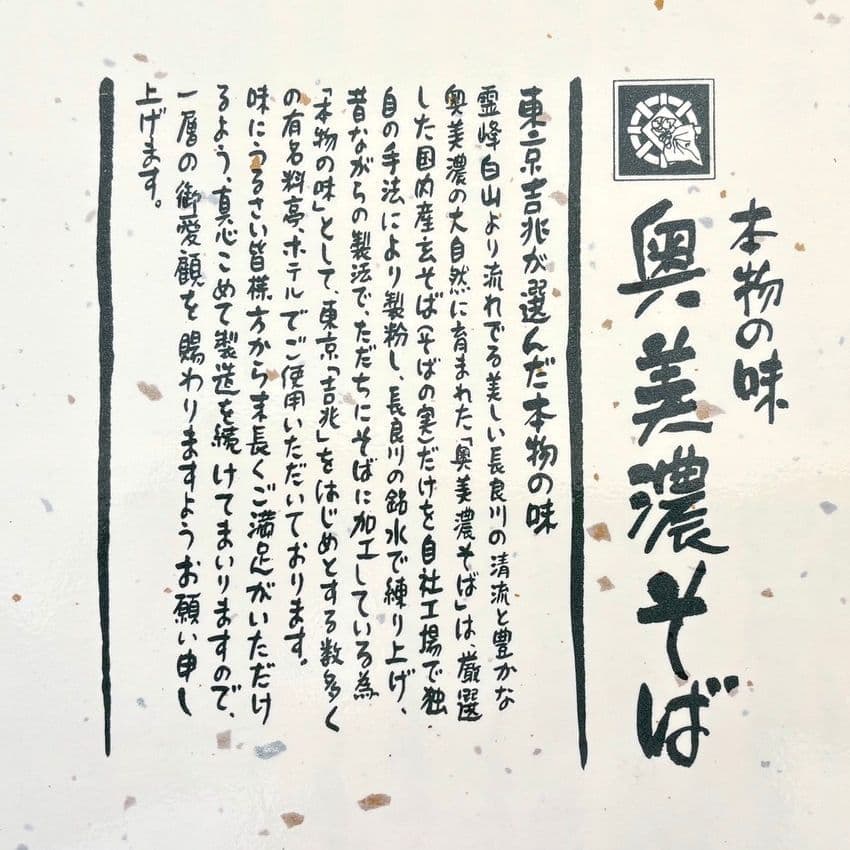 本物の味
奥美濃そば
東京吉兆が選んだ本物の味
霊峰白山より流れでる美しい長良川の清流と豊かな
奥美濃の大自然に育まれた「奥美濃そば」は、厳選
した国内産玄そば(そばの実)だけを自社工場で独
自の手法により製粉し、長良川の銘水で練り上げ、
昔ながらの製法で、ただちにそばに加工している為
「本物の味」として、東京「吉兆」をはじめとする数多く
の有名料亭、ホテルでご使用いただいております。
味にうるさい皆様方から末長くご満足がいただけ
るよう、真心こめて製造を続けてまいりますので、
一層の御愛顧を賜わりますようお願い申し
上げます。